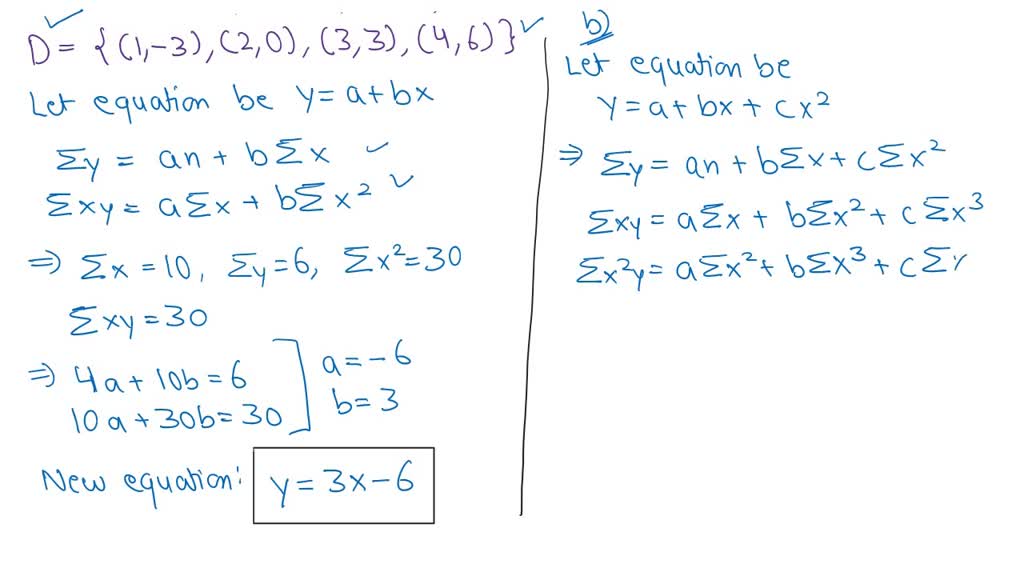 D = {(1,-3), (2,0), (3,3), (4,6)}
Let equation be y = a + bx
Σy = an + bΣx
Σxy = aΣx + bΣx²
⇒ Σx = 10, Σy = 6, Σx² = 30
Σxy = 30
⇒ 4a + 10b = 6
10a + 30b = 30
a = -6
b = 3
New equation: y = 3x - 6
b)
Let equation be
y = a + bx + cx²
⇒ Σy = an + bΣx + cΣx²
Σxy = aΣx + bΣx² + cΣx³
Σx²y = aΣx² + bΣx³ + cΣ